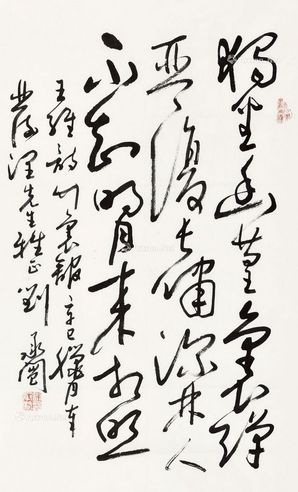 獨坐幽篁裏彈
琴復長嘯深林人
不知明月來相照
王維詩竹裏館 辛巳臘月
先生雅正 劉